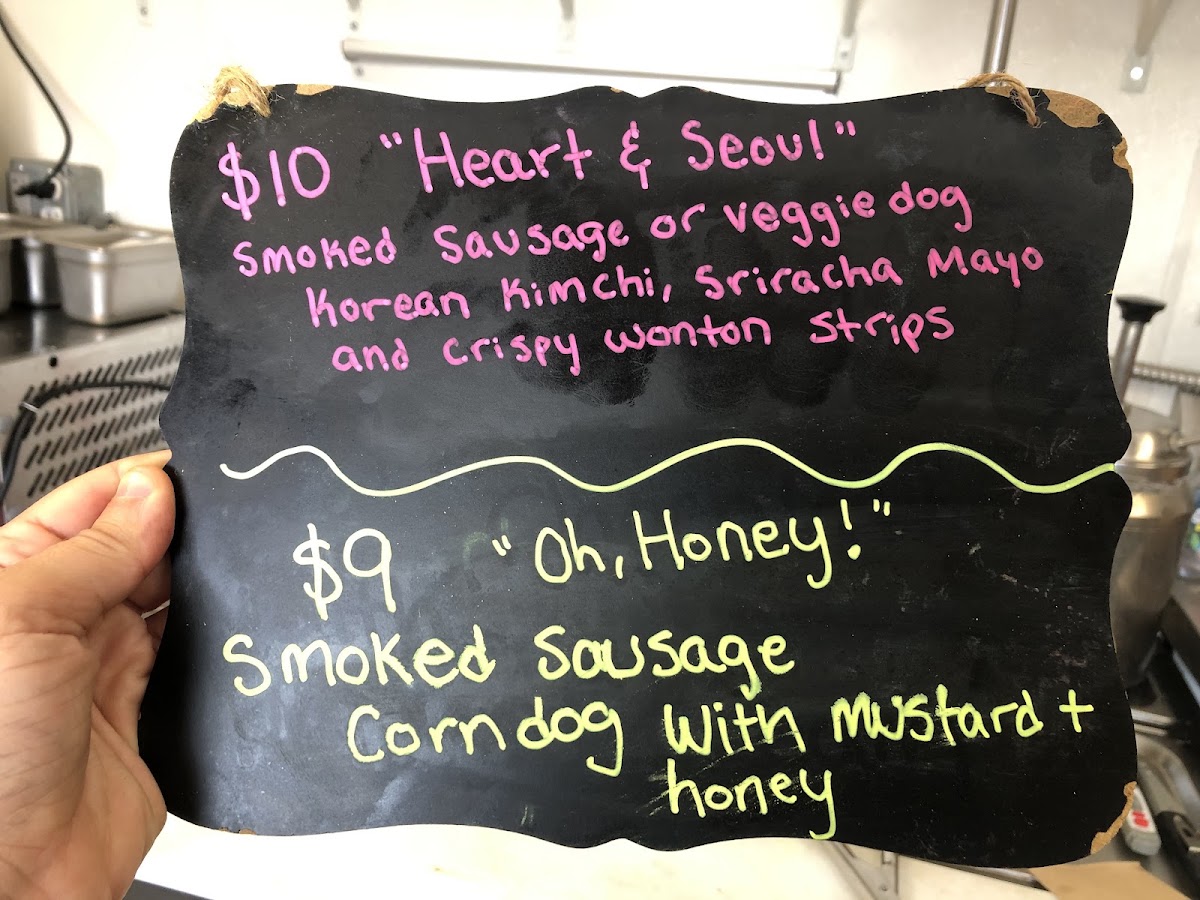 $10 "Heart & Seoul"
Smoked Sausage or veggie dog
Korean Kimchi, Sriracha Mayo
and crispy wonton strips
$9 "Oh, Honey!"
Smoked Sausage
Corndog with mustard +
honey